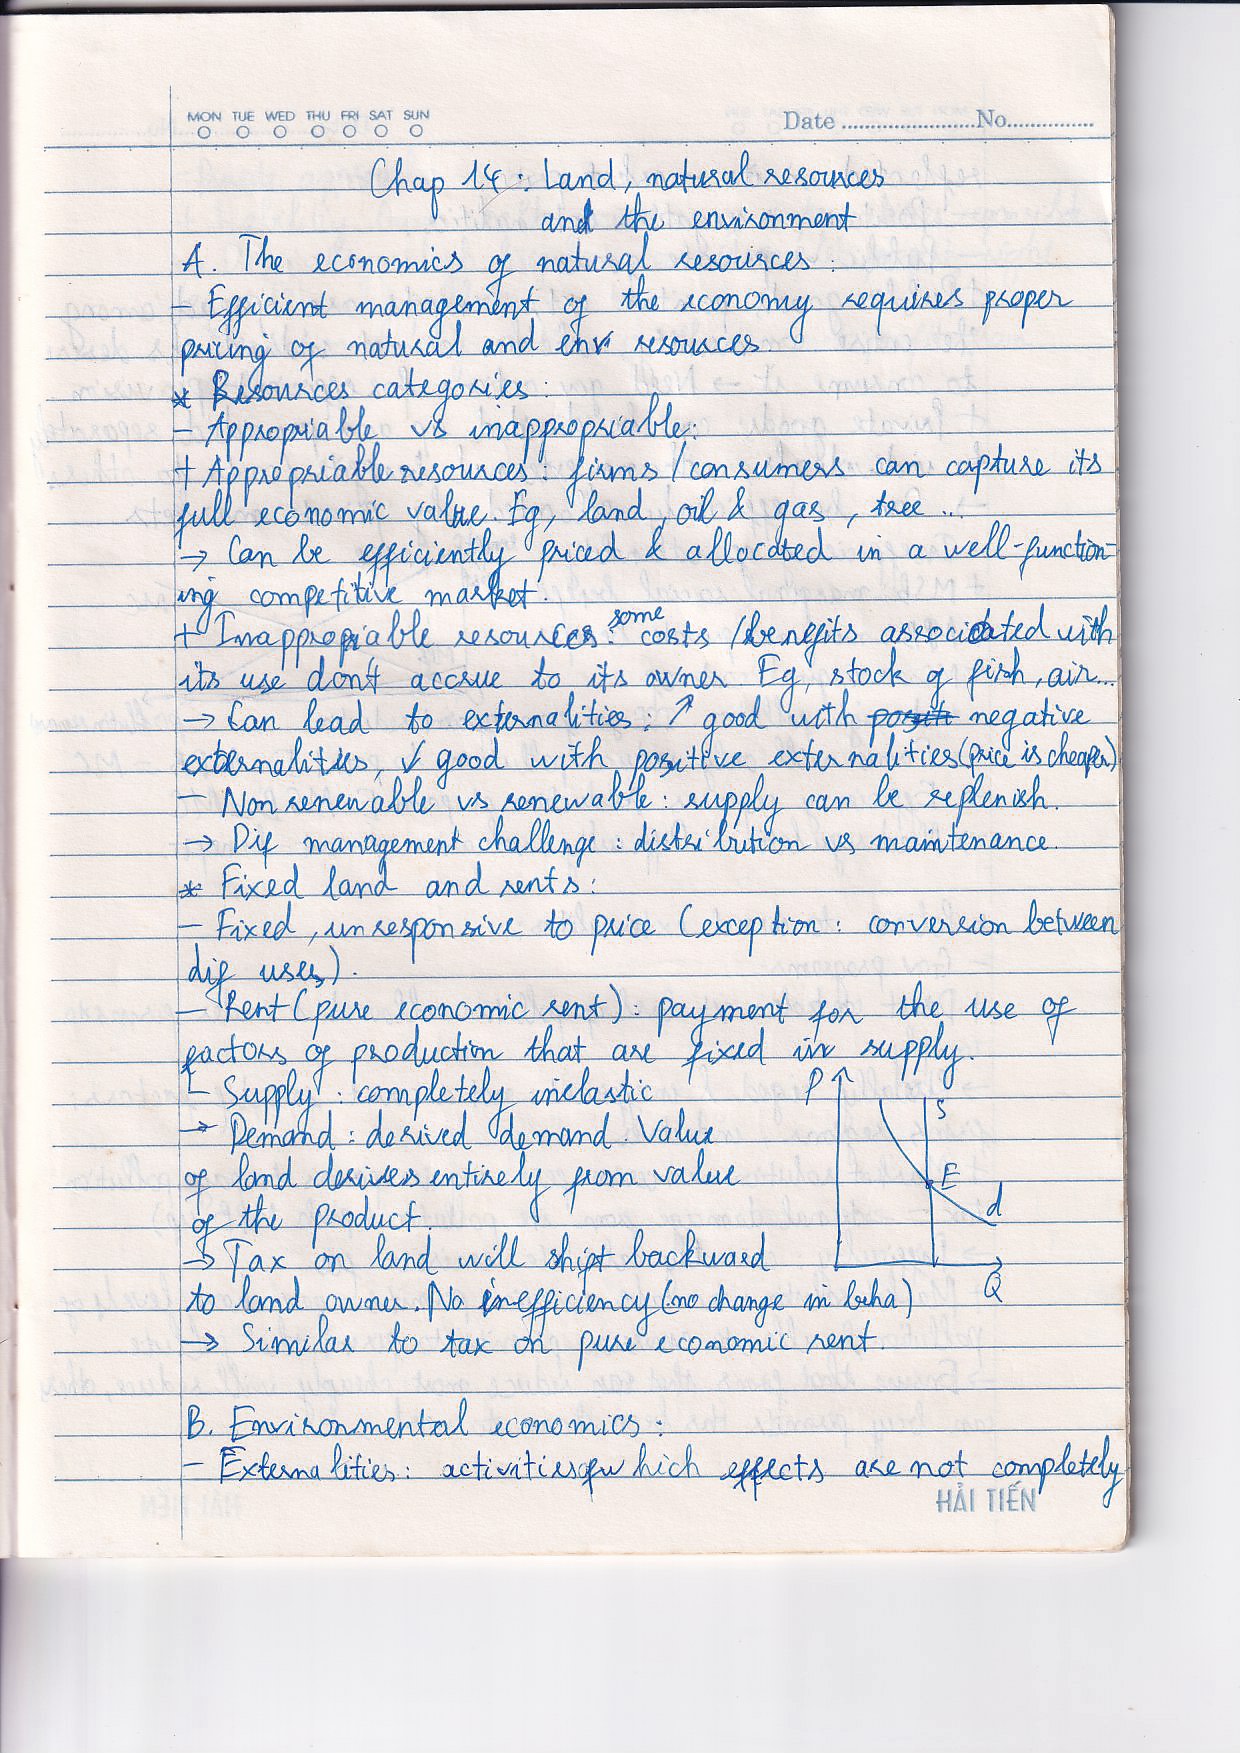 MON TUE WED THU FRI SAT SUN
Date ........................No................
Chap 14 : Land, natural resources
and the environment
A. The economics of natural resources :
- Efficient management of the economy requires proper
pricing of natural and envi resources.
* Resources categories :
- Appropriable vs inappropriable:
+ Appropriable resources : firms / consumers can capture its
full economic value. Eg, land, oil & gas, tree ...
→ Can be efficiently priced & allocated in a well-function-
ing competitive market.
+ Inappropriable resources : some costs / benefits associated with
its use don't accrue to its owner. Eg, stock of fish, air...
→ Can lead to externalities : ↗ good with negative
externalities, ↙ good with positive externalities (price is cheaper)
- Non renewable vs renewable : supply can be replenish.
→ Dif management challenge : distribution vs maintenance.
* Fixed land and rents :
- Fixed, unresponsive to price (exception : conversion between
dif uses).
- Rent (pure economic rent) : payment for the use of
factors of production that are fixed in supply.
- Supply : completely inelastic
→ Demand : derived demand. Value
of land derives entirely from value
of the product.
→ Tax on land will shift backward
to land owner. No inefficiency (no change in beha)
→ Similar to tax on pure economic rent.
P
S
E
d
Q
B. Environmental economics :
- Externalities : activities of which effects are not completely
HẢI TIẾN